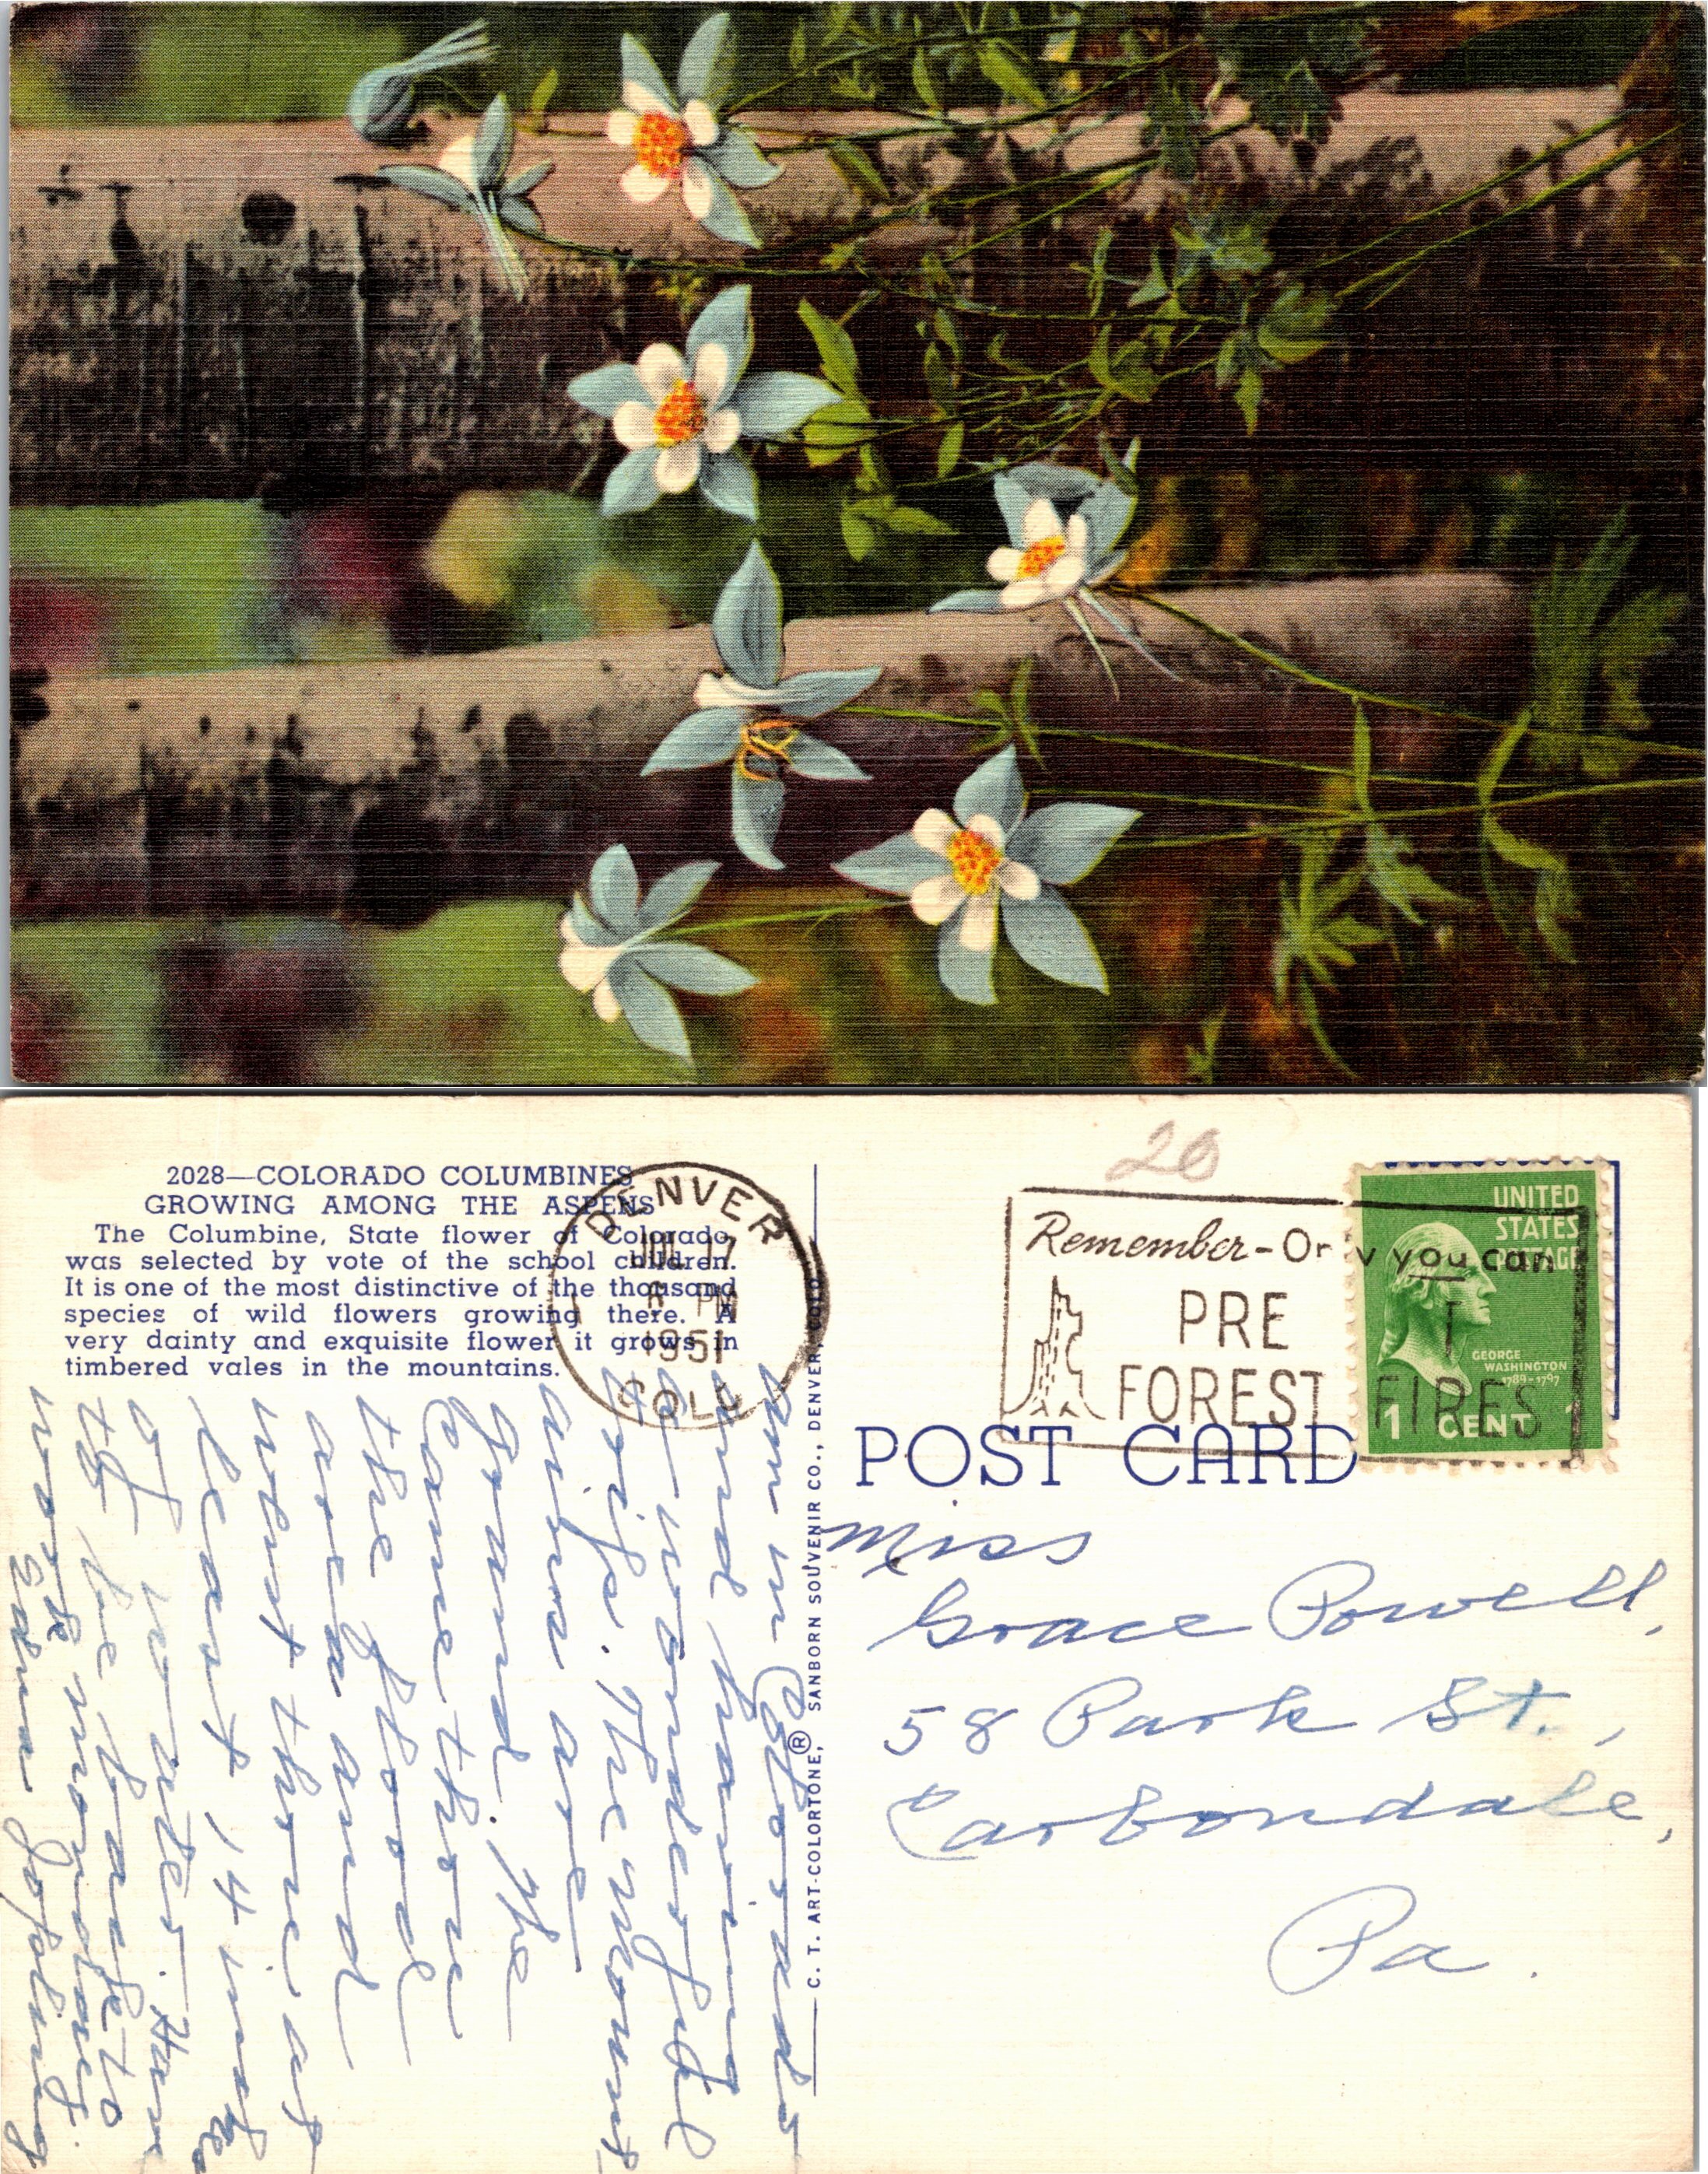 2028—COLORADO COLUMBINES
GROWING AMONG THE ASPENS
The Columbine, State flower of Colorado,
was selected by vote of the school children.
It is one of the most distinctive of the thousand
species of wild flowers growing there. A
very dainty and exquisite flower it grows in
timbered vales in the mountains.
DENVER
JUL 17
PM
1951
COLO
am in Colorado
and having
a wonderful
trip. The mount-
ains are
grand. We
came thro
the flood
area and
went thro at
least 14 inches
of water. Have
to be back to
work monday.
C. T. ART-COLORTONE, ® SANBORN SOUVENIR CO., DENVER, COLO.
20
Remember-Only you can
PRE T
FOREST FIRES
UNITED
STATES
POSTAGE
GEORGE
WASHINGTON
1789-1797
1 CENT 1
POST CARD
Miss
Grace Powell,
58 Park St.,
Carbondale,
Pa.